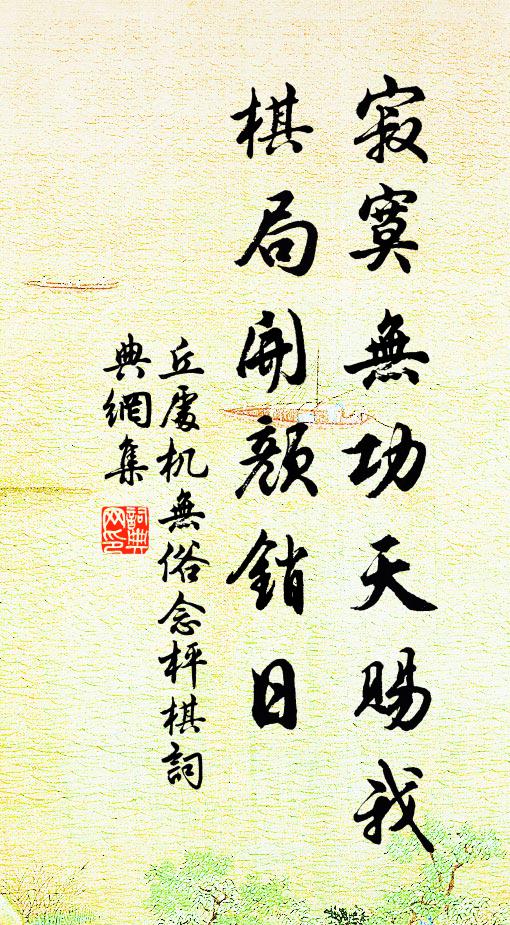 寂寞無功天賜我
棋局開顏銷日
丘處机無俗念枰棋詞
典網集
詞典网印